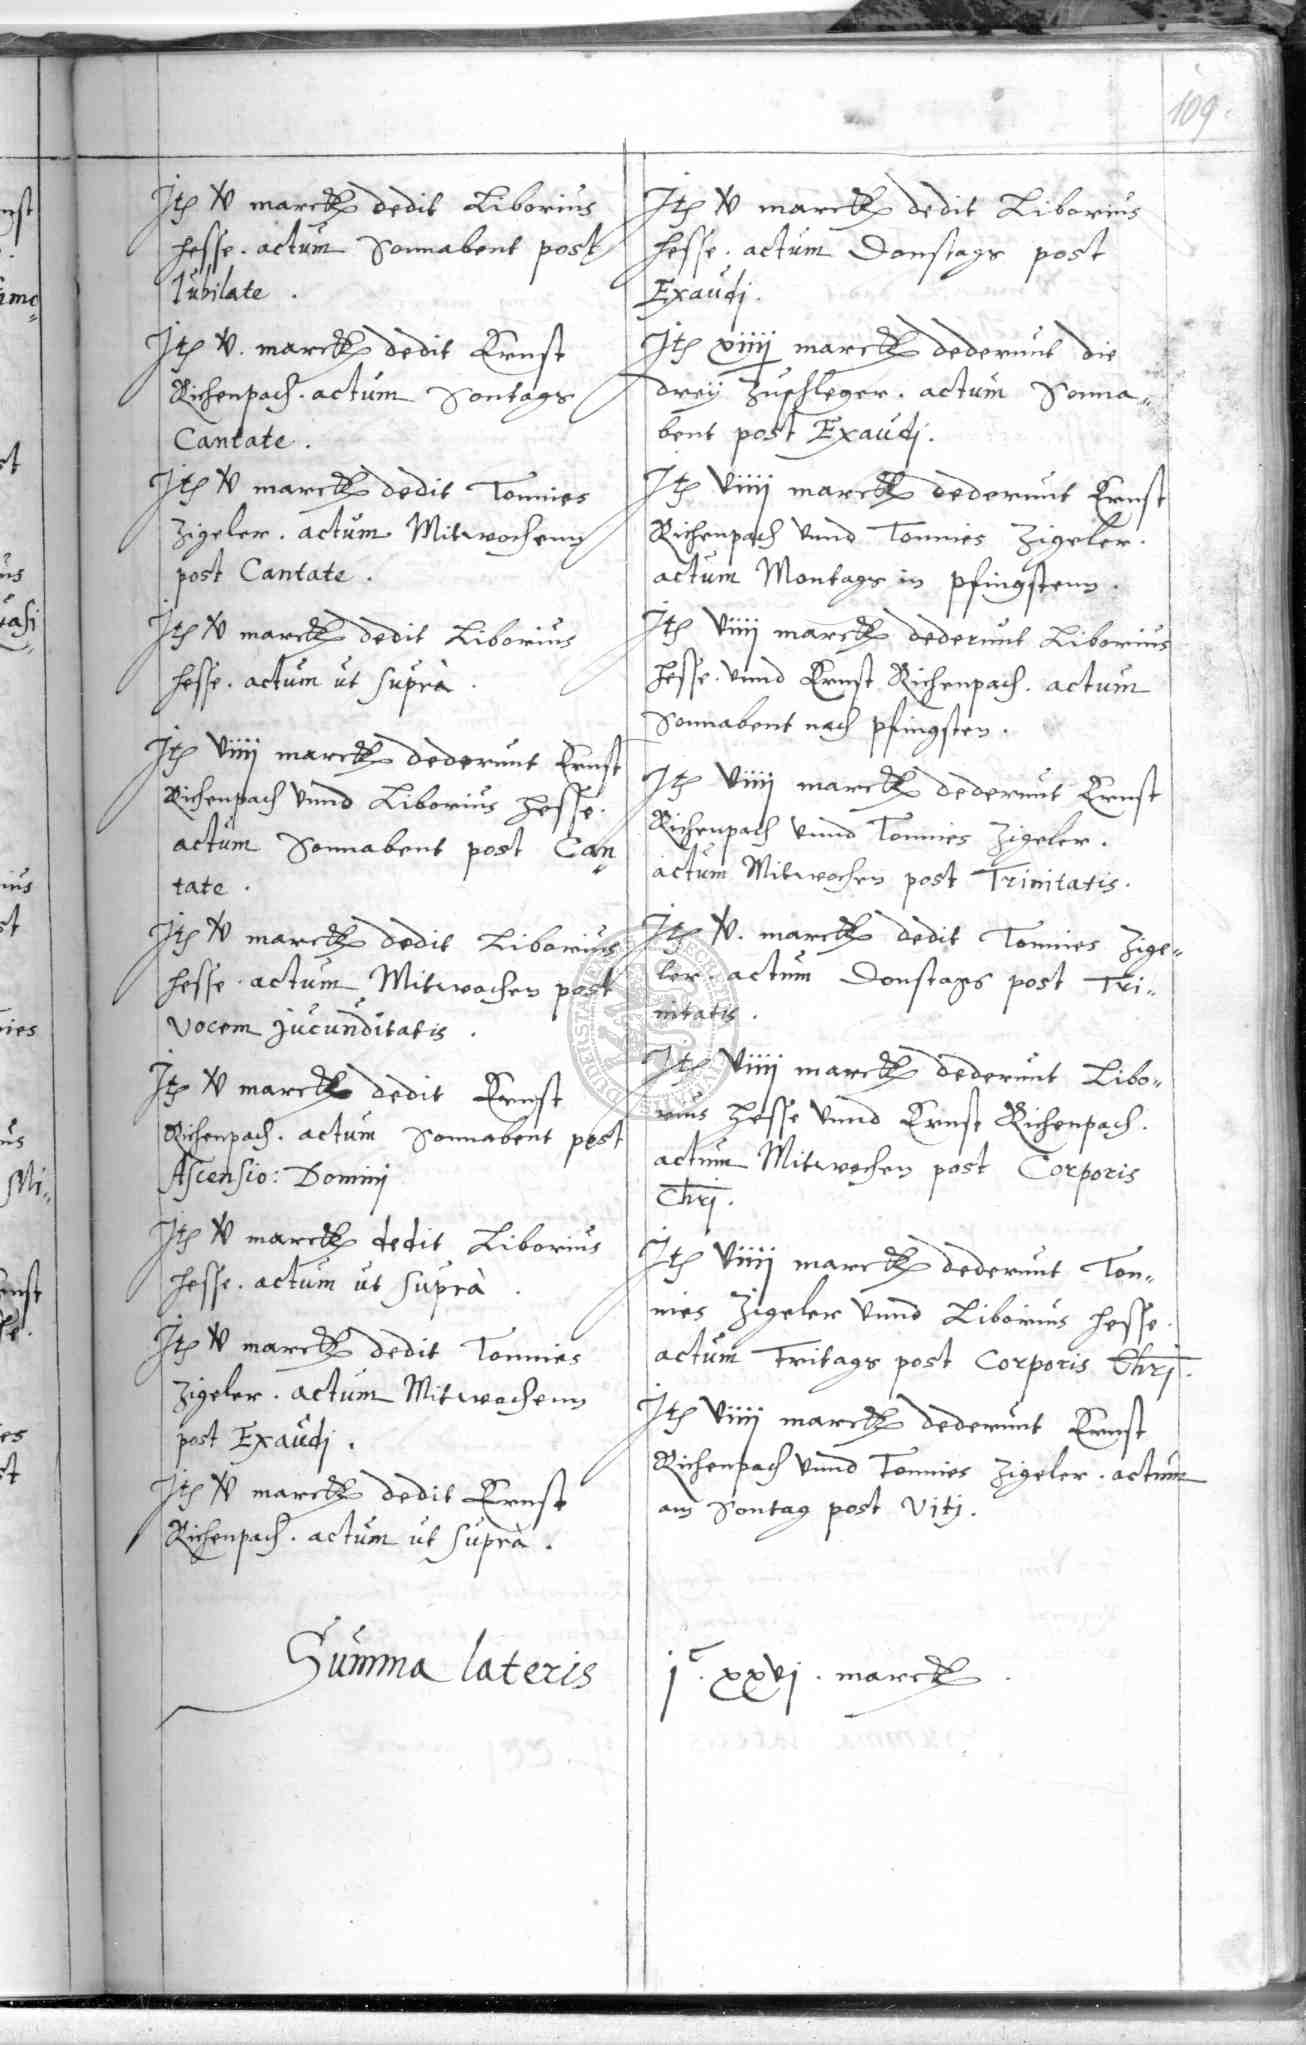 109.
Jtē v marck dedit Liborius
Hesse. actum Sonnabent post
Jubilate.
Jtē v. marck dedit Ernst
Richenpach. actum Sontags
Cantate.
Jtē v marck dedit Tonnies
Zigeler. actum Mitwochenn
post Cantate.
Jtē v marck dedit Liborius
Hesse. actum ut suprà.
Jtē viiij marck dederunt Ernst
Richenpach vnnd Liborius Hesse.
actum Sonnabent post Can„
tate.
Jtē v marck dedit Liborius
Hesse. actum Mitwochen post
Vocem jucunditatis.
Jtē v marck dedit Ernst
Richenpach. actum Sonnabent post
Ascensio: Dominj
Jtē v marck dedit Liborius
Hesse. actum ut suprà.
Jtē v marck dedit Tonnies
Zigeler. actum Mitwochenn
post Exaudj.
Jtē v marck dedit Ernst
Richenpach. actum ut suprà.
Summa lateris
Jtē v marck dedit Liborius
Hesse. actum Donstags post
Exaudj.
Jtē xiiij marck dederunt die
drey Zuschleger. actum Sonna„
bent post Exaudj.
Jtē viiij marck dederunt Ernst
Richenpach vnnd Tonnies Zigeler.
actum Montags in pfingstenn.
Jtē viiij marck dederunt Liborius
Hesse. vnnd Ernst Richenpach. actum
Sonnabent nach pfingsten.
Jtē viiij marck dederunt Ernst
Richenpach vnnd Tonnies Zigeler.
actum Mitwochen post Trinitatis.
Jtē v. marck dedit Tonnies Zige„
ler. actum Donstags post Tri„
nitatis.
Jtē viiij marck dederunt Libo„
rius Hesse vnnd Ernst Richenpach.
actum Mitwochen post Corporis
Chrj.
Jtē viiij marck dederunt Ton„
nies Zigeler vnnd Liborius Hesse.
actum Fritags post Corporis Chrj.
Jtē viiij marck dederunt Ernst
Richenpach vnnd Tonnies Zigeler. actum
am Sontag post Vitj.
jᶜ. xxvj. marck.